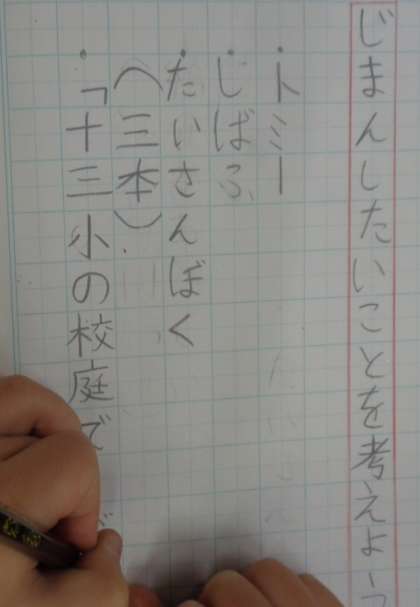 じまんしたいことを考えよう
・トミー
・じばふ
・たいさんぼく
（三本）
・「十三小の校庭で